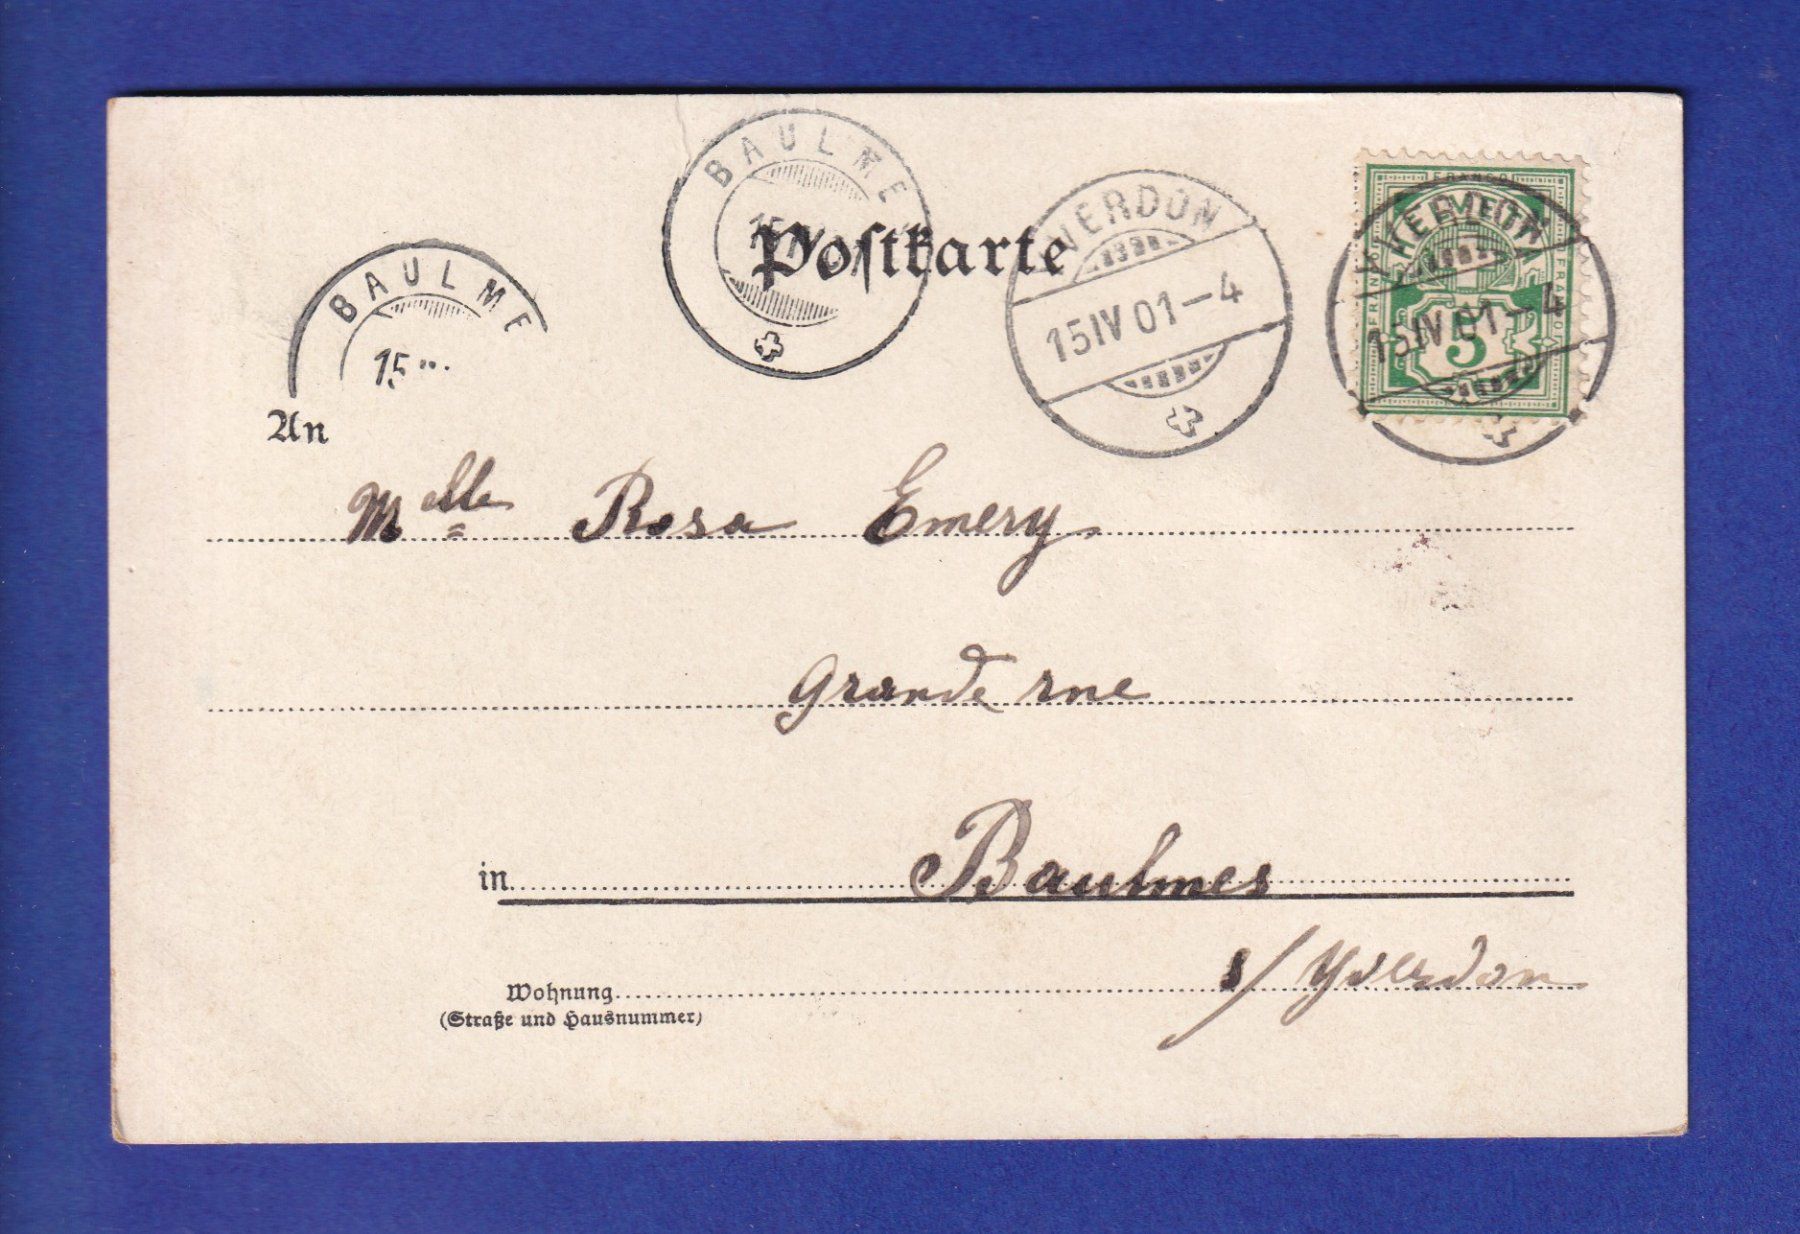 BAULME
YVERDON
FRANCO
HELVETIA
Postkarte
15 IV 01 – 4
15 IV 01 – 4
5
BAULME
15
An
Mlle Rosa Emery
Grande rue
in Baulmes
s/ Yverdon
Wohnung
(Straße und Hausnummer)